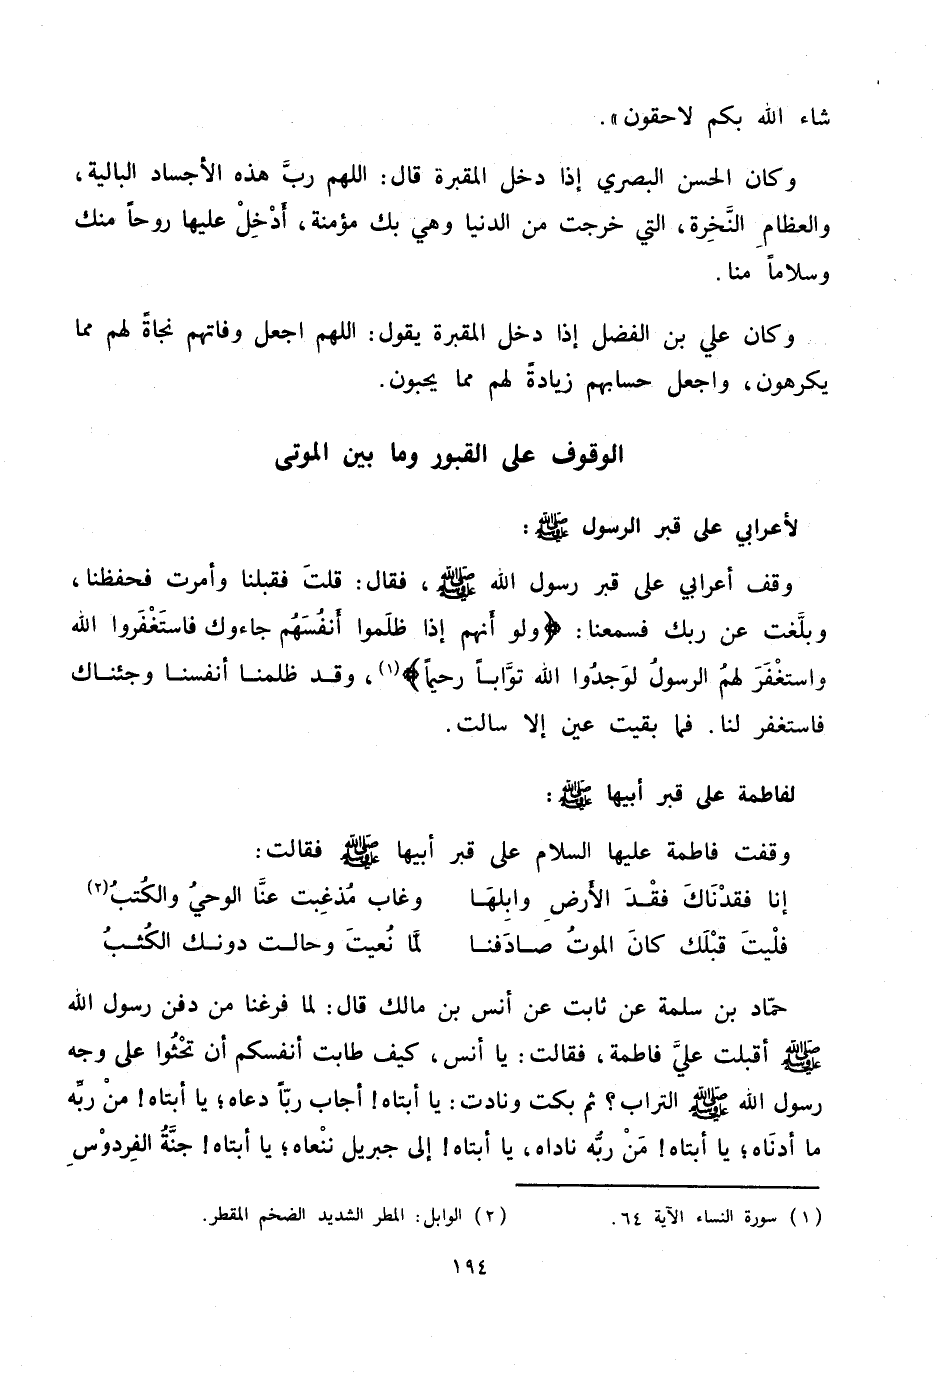 شاء الله بكم لاحقون».
وكان الحسن البصري إذا دخل المقبرة قال: اللهم ربَّ هذه الأجساد البالية،
والعظامِ النَّخِرة، التي خرجت من الدنيا وهي بك مؤمنة، أَدْخِلْ عليها روحاً منك
وسلاماً منا.
وكان علي بن الفضل إذا دخل المقبرة يقول: اللهم اجعل وفاتهم نجاةً لهم مما
يكرهون، واجعل حسابهم زيادةً لهم مما يحبون.
الوقوف على القبور وما بين الموتى
لأعرابي على قبر الرسول ﷺ:
وقف أعرابي على قبر رسول الله ﷺ، فقال: قلتَ فقبلنا وأمرت فحفظنا،
وبلَّغت عن ربك فسمعنا: ﴿ولو أنهم إذا ظلَموا أَنفُسَهُم جاءوك فاستَغْفَروا الله
واستغْفَرَ لهمُ الرسولُ لوَجدُوا الله توَّابـاً رحيماً﴾(١)، وقـد ظلمنـا أنفسنـا وجئنـاك
فاستغفر لنا. فما بقيت عين إلا سالت.
لفاطمة على قبر أبيها ﷺ:
وقفت فاطمة عليها السلام على قبر أبيها ﷺ فقالت:
إنا فقدْنَاكَ فقْـدَ الأَرضِ وابِلهَـا وغاب مُذغِبت عنَّا الوحيُ والكُتبُ(٢)
فلْيتَ قبْلَك كانَ الموتُ صـادَفنـا لمَّا نُعيتَ وحالـت دونـك الكُثـبُ
حمّاد بن سلمة عن ثابت عن أنس بن مالك قال: لما فرغنا من دفن رسول الله
ﷺ أقبلت عليَّ فاطمة، فقالت: يا أنس، كيف طابت أنفسكم أن تحْثُوا على وجه
رسول الله ﷺ التراب؟ ثم بكت ونادت: يا أبتاه! أجاب ربّاً دعاه؛ يا أبتاه! منْ ربِّه
ما أدنَاه؛ يا أبتاه! مَنْ ربُّه ناداه، يا أبتاه! إلى جبريل ننْعاه؛ يا أبتاه! جنَّةُ الفِردوْسِ
(١) سورة النساء الآية ٦٤. (٢) الوابل: المطر الشديد الضخم المقطر.
١٩٤